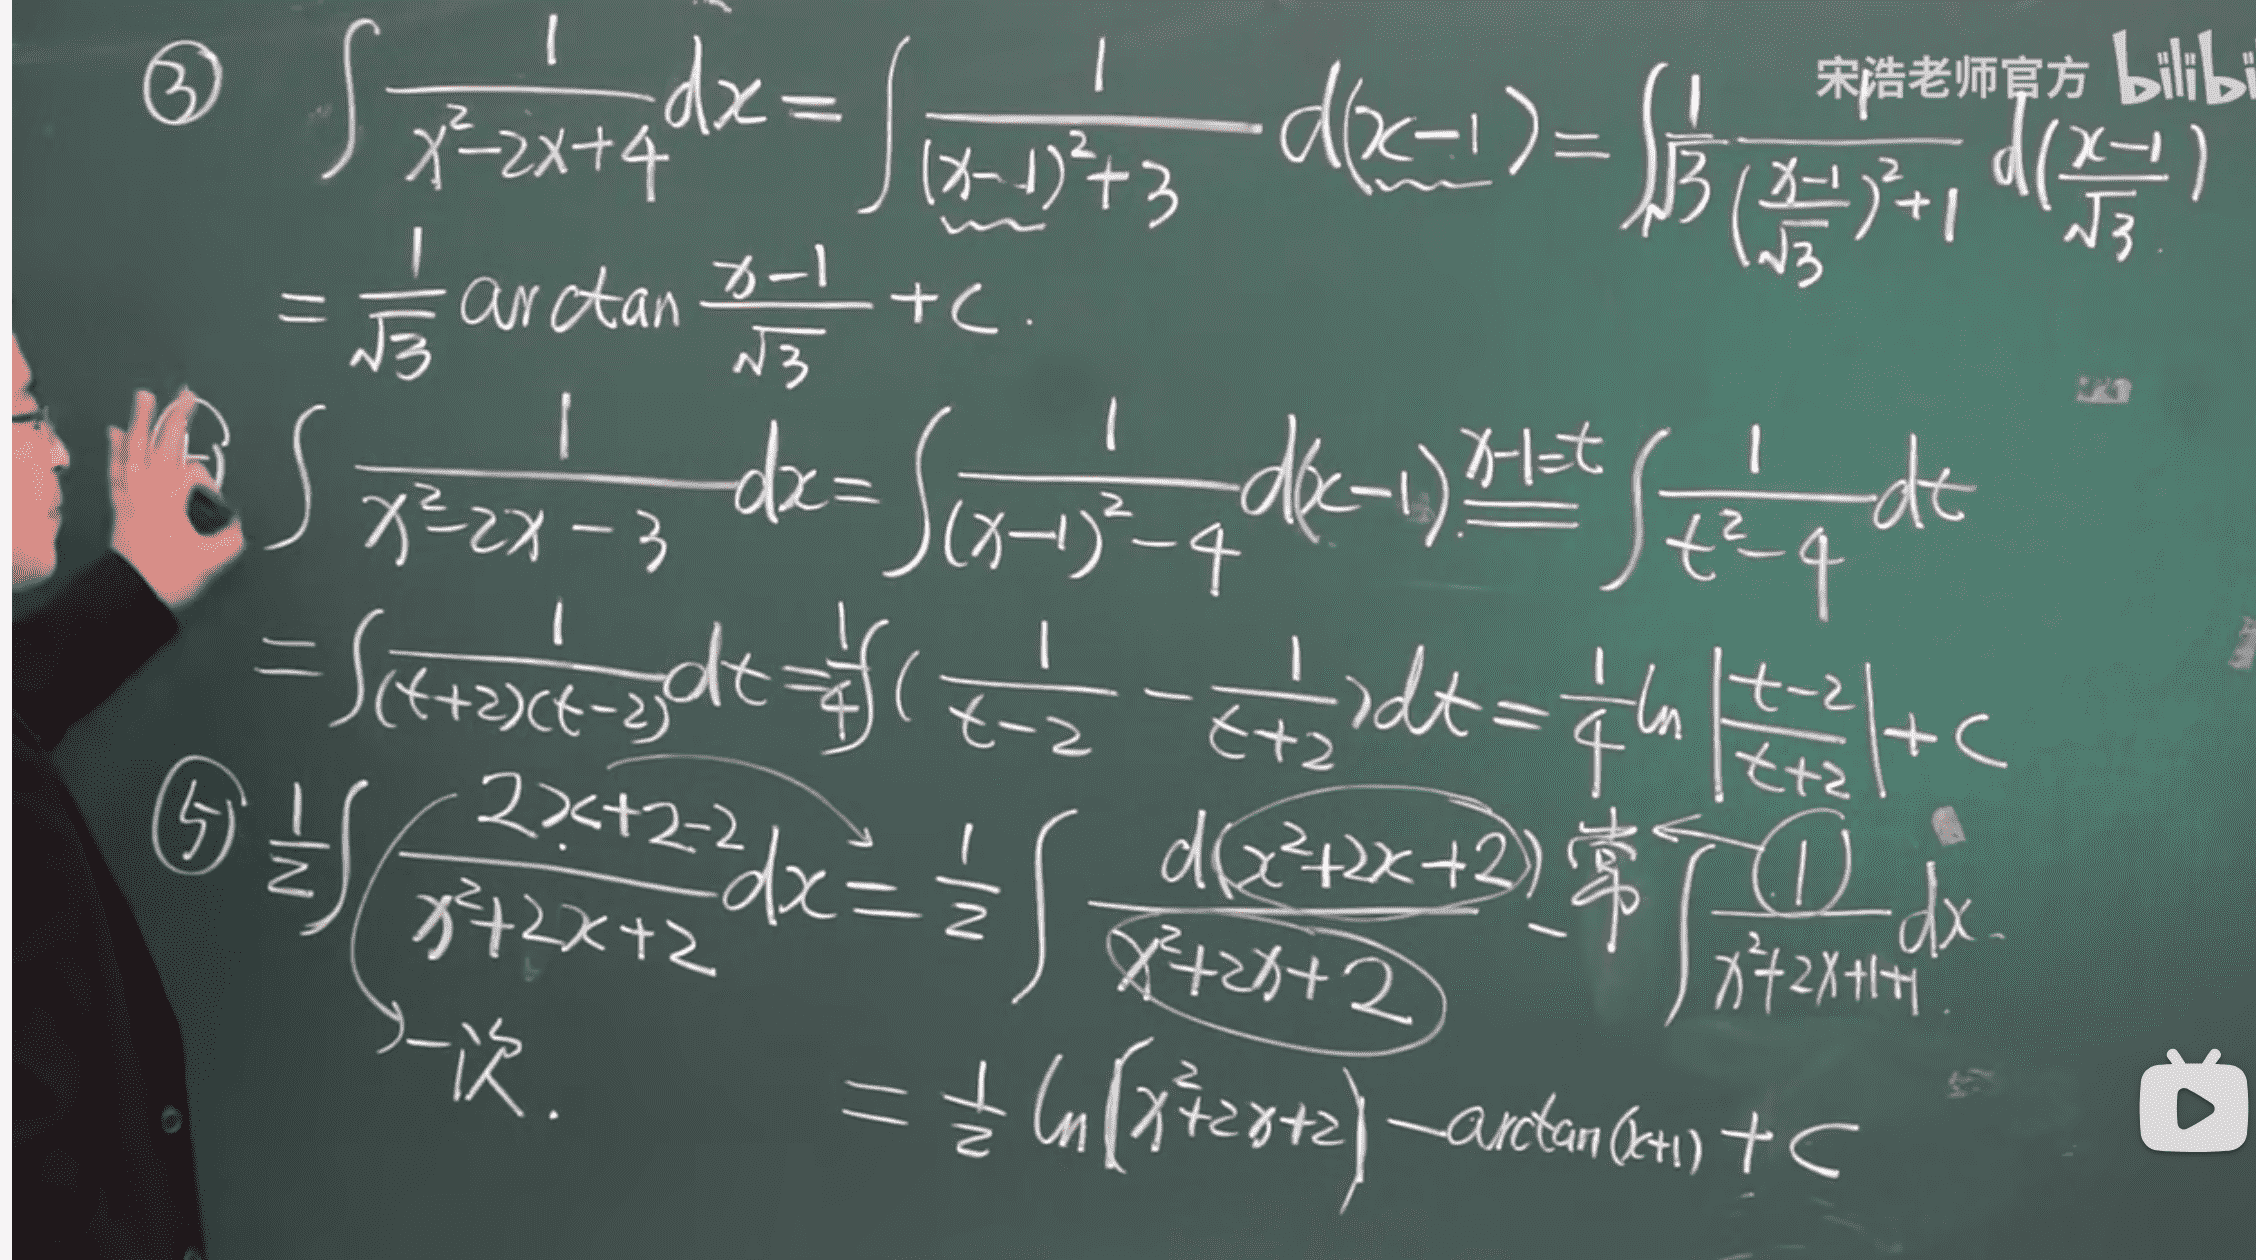 宋浩老师官方 bilibi
③ ∫ 1/(x²-2x+4) dx = ∫ 1/((x-1)²+3) d(x-1) = ∫ 1/√3 1/(((x-1)/√3)²+1) d((x-1)/√3)
= 1/√3 arctan (x-1)/√3 + C.
∫ 1/(x²-2x-3) dx = ∫ 1/((x-1)²-4) d(x-1) x-1=t ∫ 1/(t²-4) dt
= ∫ 1/((t+2)(t-2)) dt = 1/4 ∫ ( 1/(t-2) - 1/(t+2) ) dt = 1/4 ln |(t-2)/(t+2)| + C
⑤ 1/2 ∫ (2x+2-2)/(x²+2x+2) dx = 1/2 ∫ d(x²+2x+2)/(x²+2x+2) - ∫ 1/(x²+2x+1+1) dx.
常
一次.
= 1/2 ln(x²+2x+2) - arctan(x+1) + C